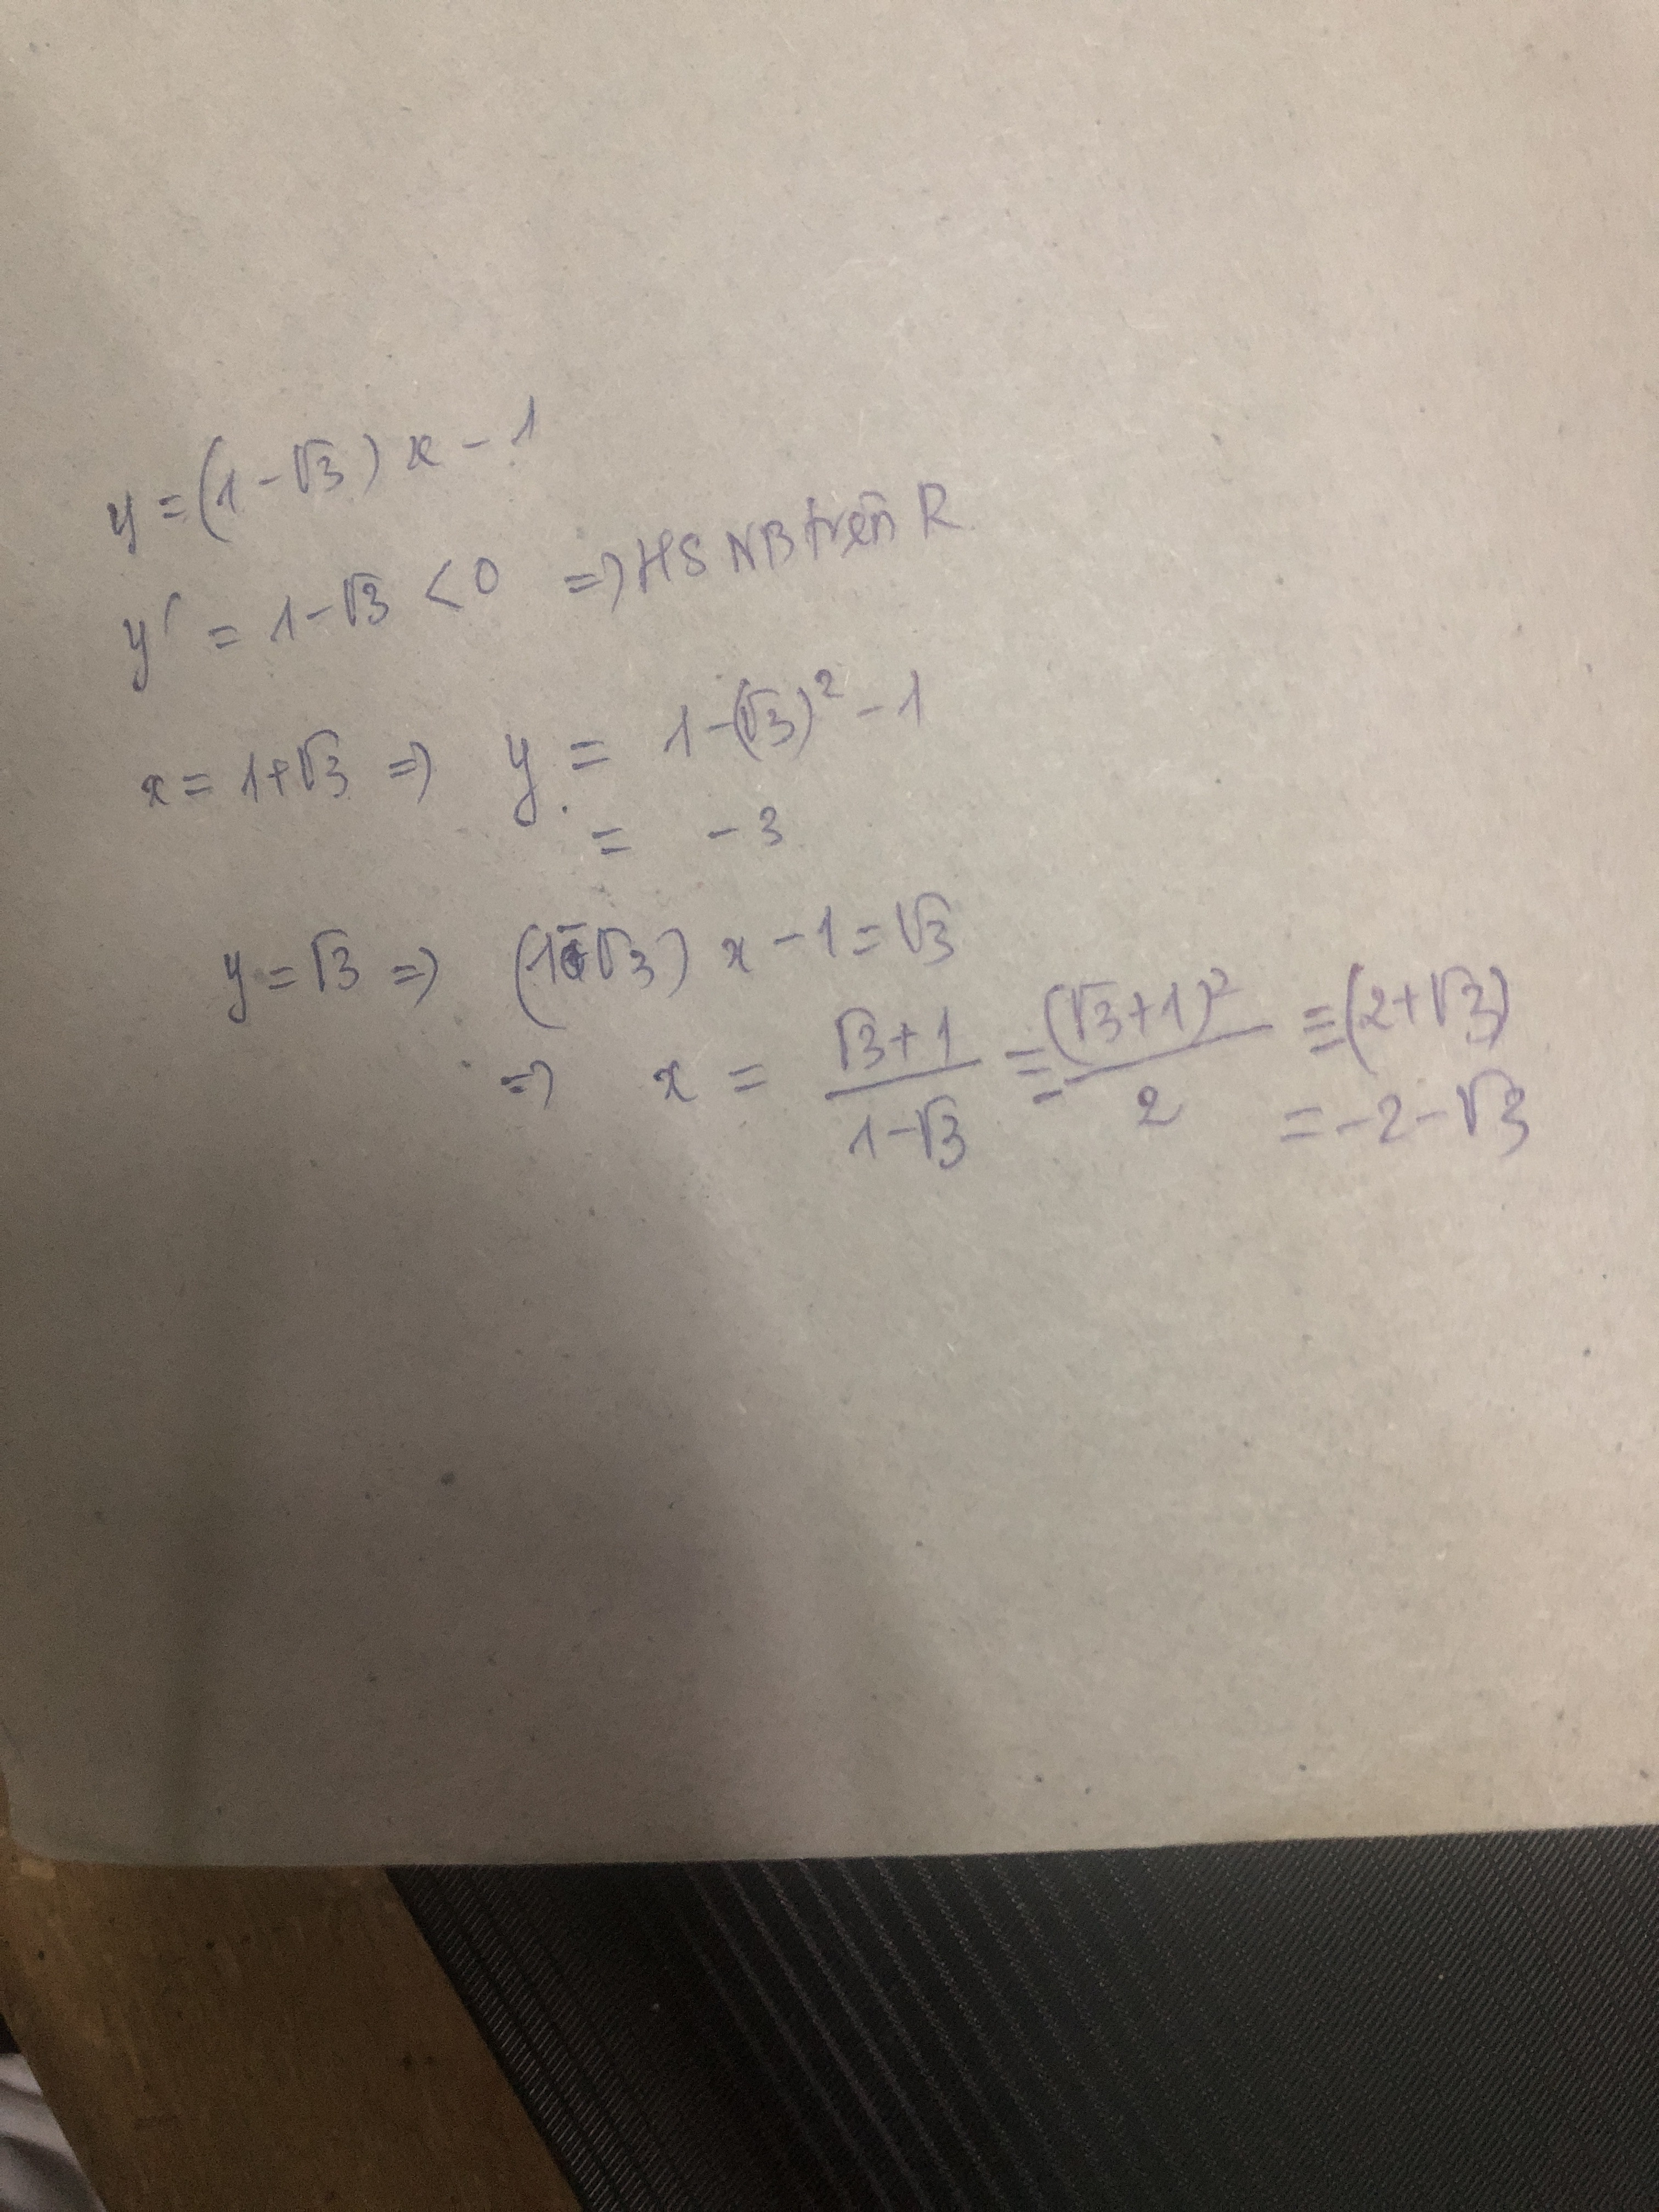 y = (1-√3) x - 1
y' = 1-√3 < 0 => HS NB trên R
x = 1+√3 => y = 1-(√3)² - 1
= -3
y = √3 => (1-√3) x - 1 = √3
=> x = (√3+1)/(1-√3) = -(√3+1)²/2 = -(2+√3)
= -2-√3